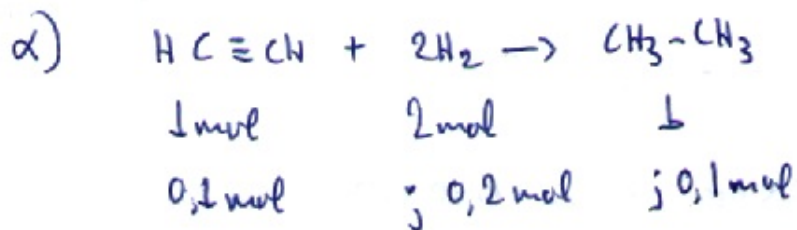 α) HC≡CH + 2H₂ → CH₃-CH₃
1mol 2mol 1
0,1mol ; 0,2mol ; 0,1mol